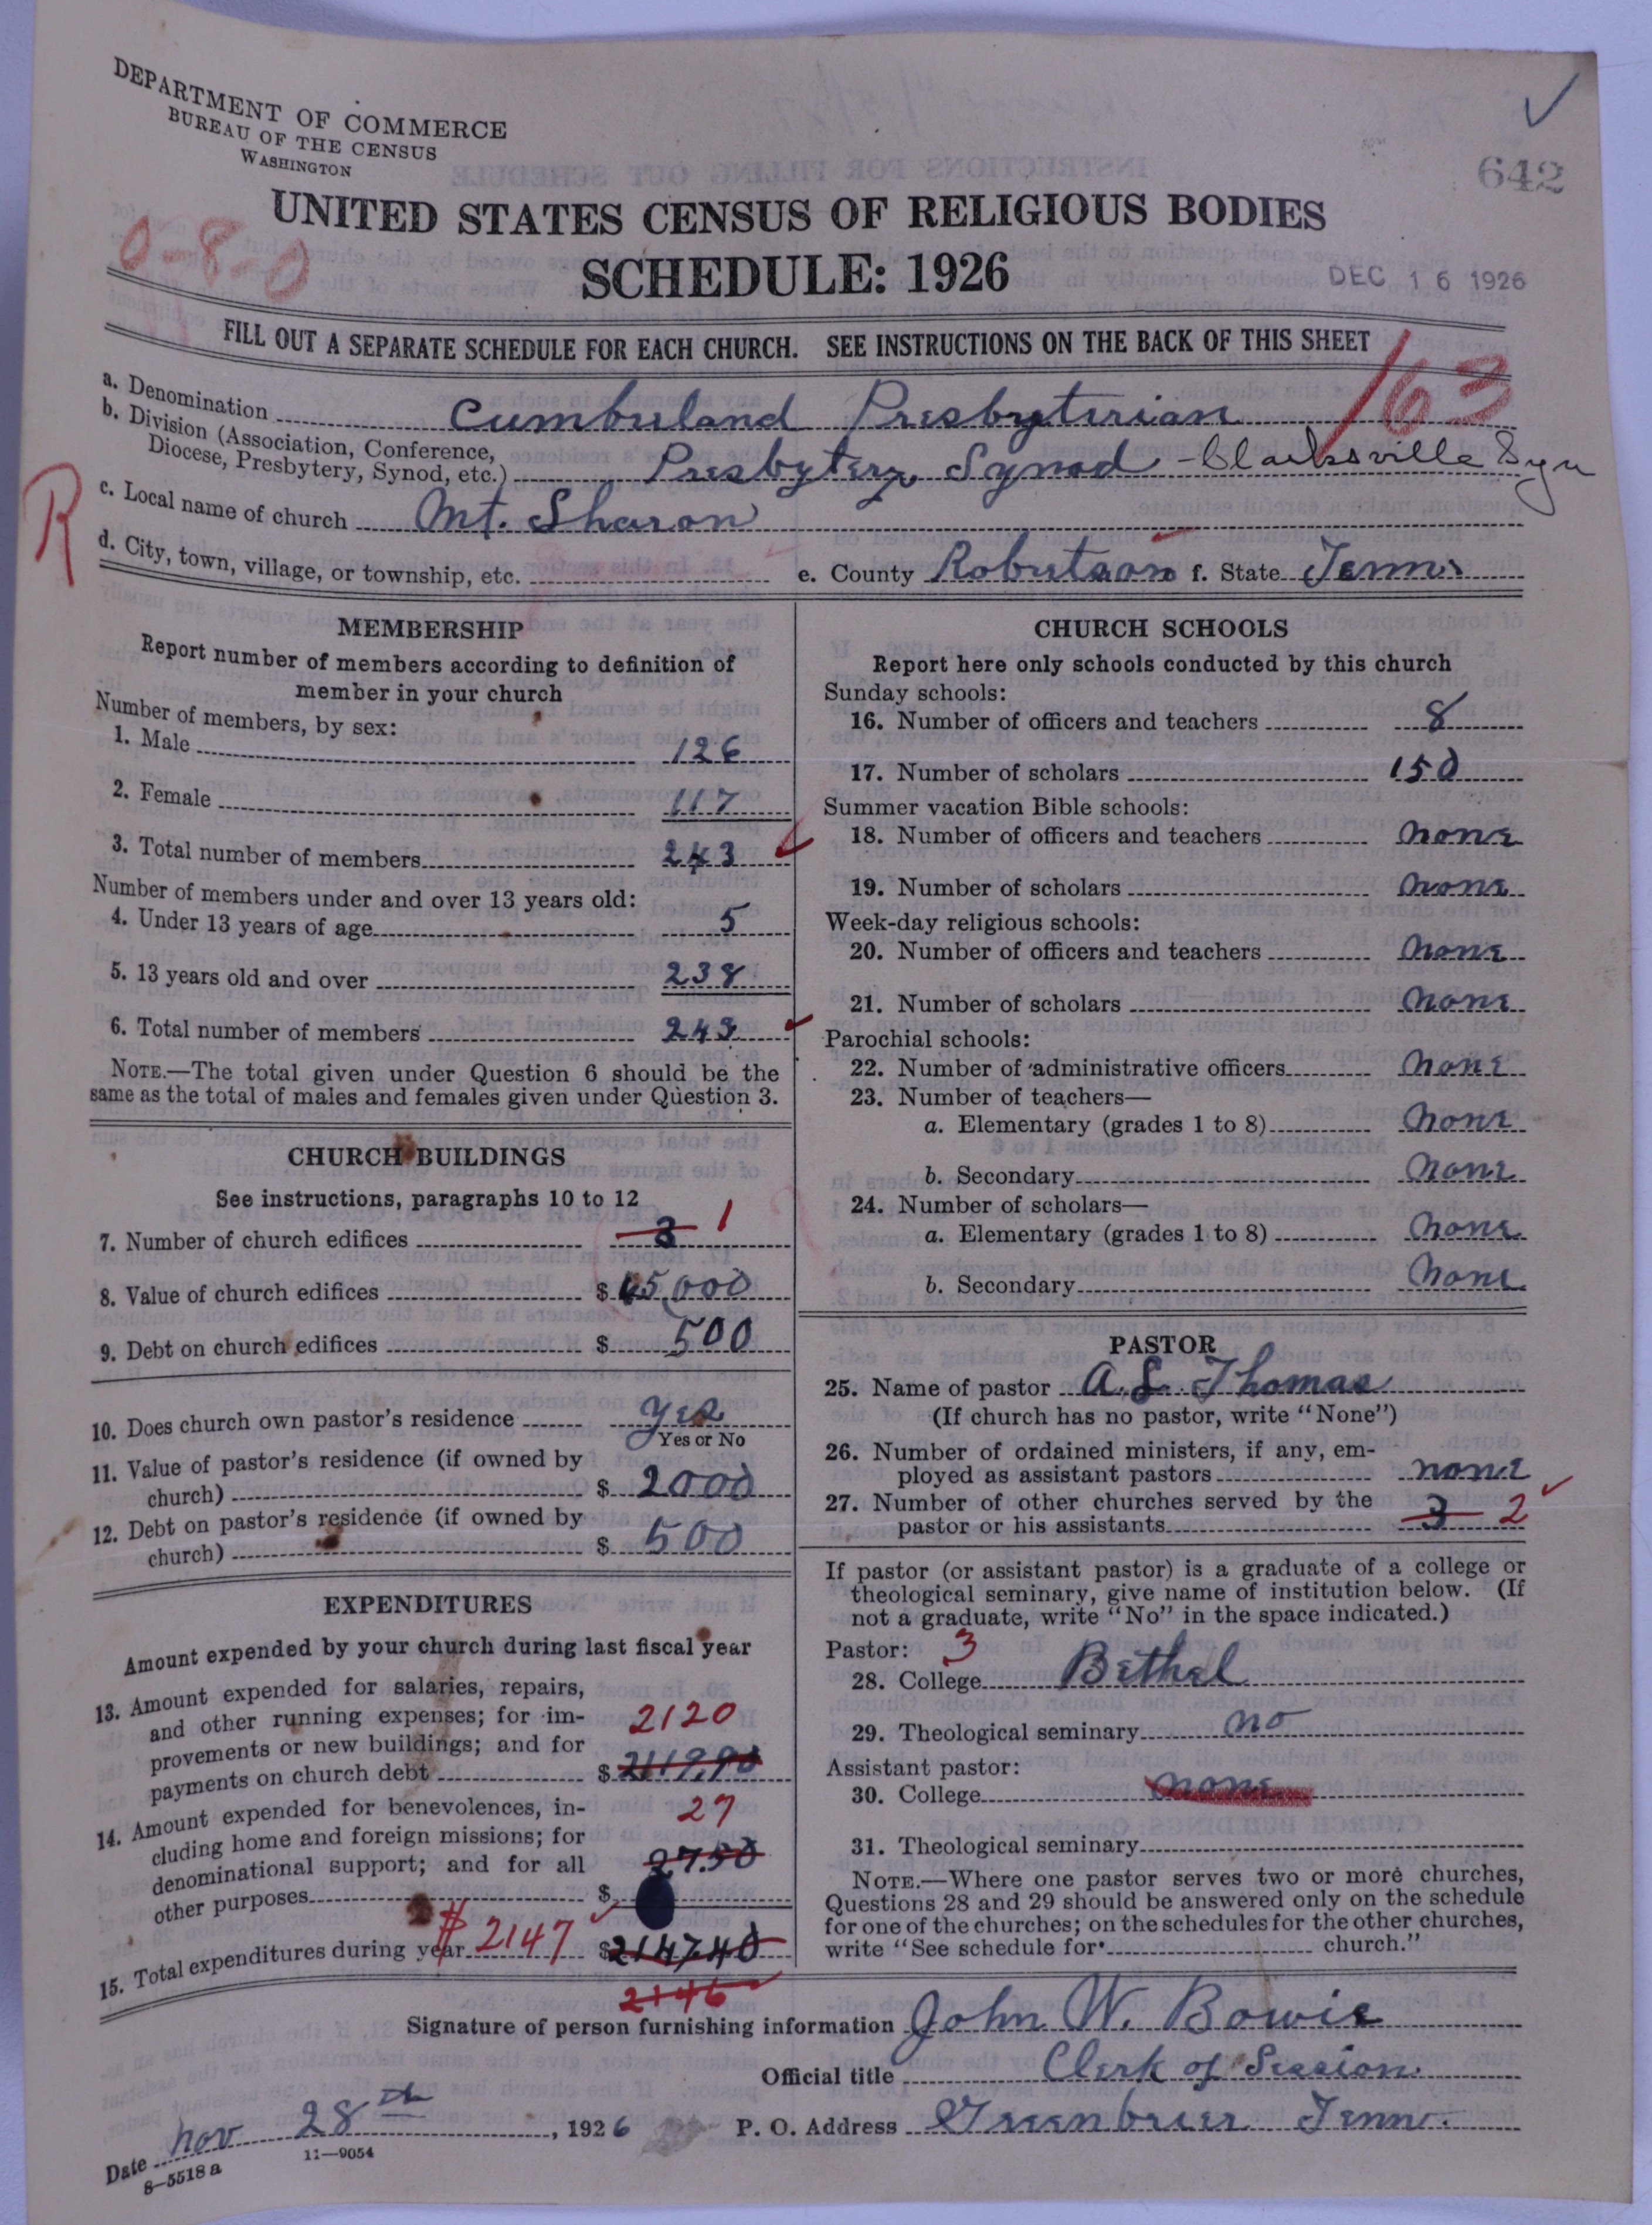 DEPARTMENT OF COMMERCE
BUREAU OF THE CENSUS
WASHINGTON
642
UNITED STATES CENSUS OF RELIGIOUS BODIES
0-8-0
SCHEDULE: 1926
DEC 16 1926
FILL OUT A SEPARATE SCHEDULE FOR EACH CHURCH. SEE INSTRUCTIONS ON THE BACK OF THIS SHEET
163
a. Denomination Cumberland Presbyterian
b. Division (Association, Conference,
Diocese, Presbytery, Synod, etc.) Presbytery Synod - Clarksville Syn
R
c. Local name of church Mt. Sharon
d. City, town, village, or township, etc. e. County Robertson f. State Tenn.
MEMBERSHIP
Report number of members according to definition of
member in your church
Number of members, by sex:
1. Male 126
2. Female 117
3. Total number of members 243
Number of members under and over 13 years old:
4. Under 13 years of age 5
5. 13 years old and over 238
6. Total number of members 243
NOTE.—The total given under Question 6 should be the
same as the total of males and females given under Question 3.
CHURCH BUILDINGS
See instructions, paragraphs 10 to 12
7. Number of church edifices 3 1
8. Value of church edifices $ 5,000
9. Debt on church edifices $ 500
10. Does church own pastor's residence Yes
Yes or No
11. Value of pastor's residence (if owned by
church) $ 2000
12. Debt on pastor's residence (if owned by
church) $ 500
EXPENDITURES
Amount expended by your church during last fiscal year
13. Amount expended for salaries, repairs,
and other running expenses; for im-
provements or new buildings; and for
payments on church debt 2120
$ 2119.90
14. Amount expended for benevolences, in-
cluding home and foreign missions; for
denominational support; and for all
other purposes 27
27.50
$
15. Total expenditures during year $2147 $2147.40
2146
CHURCH SCHOOLS
Report here only schools conducted by this church
Sunday schools:
16. Number of officers and teachers 8
17. Number of scholars 150
Summer vacation Bible schools:
18. Number of officers and teachers none
19. Number of scholars none
Week-day religious schools:
20. Number of officers and teachers none
21. Number of scholars none
Parochial schools:
22. Number of administrative officers none
23. Number of teachers—
a. Elementary (grades 1 to 8) none
b. Secondary none
24. Number of scholars—
a. Elementary (grades 1 to 8) none
b. Secondary none
PASTOR
25. Name of pastor A. L. Thomas
(If church has no pastor, write "None")
26. Number of ordained ministers, if any, em-
ployed as assistant pastors none
27. Number of other churches served by the
pastor or his assistants 3 2
If pastor (or assistant pastor) is a graduate of a college or
theological seminary, give name of institution below. (If
not a graduate, write "No" in the space indicated.)
Pastor: 3
28. College Bethel
29. Theological seminary no
Assistant pastor:
30. College none
31. Theological seminary
NOTE.—Where one pastor serves two or more churches,
Questions 28 and 29 should be answered only on the schedule
for one of the churches; on the schedules for the other churches,
write "See schedule for church."
Signature of person furnishing information John W. Bowie
Official title Clerk of Session
Date Nov 28th, 1926 P. O. Address Greenbrier Tenn.
8-5518a 11—9054